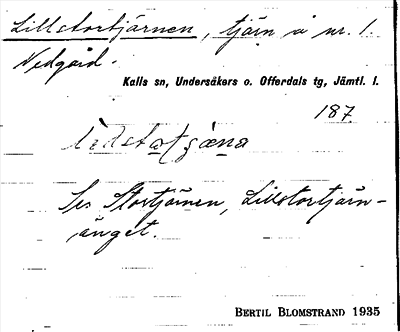 Lillstortjärnen, tjärn å nr. 1.
Nedgård.
Kalls sn, Undersåkers o. Offerdals tg, Jämtl. l.
187
Se: Stortjärnen, Lillstortjärn-
änget.
BERTIL BLOMSTRAND 1935